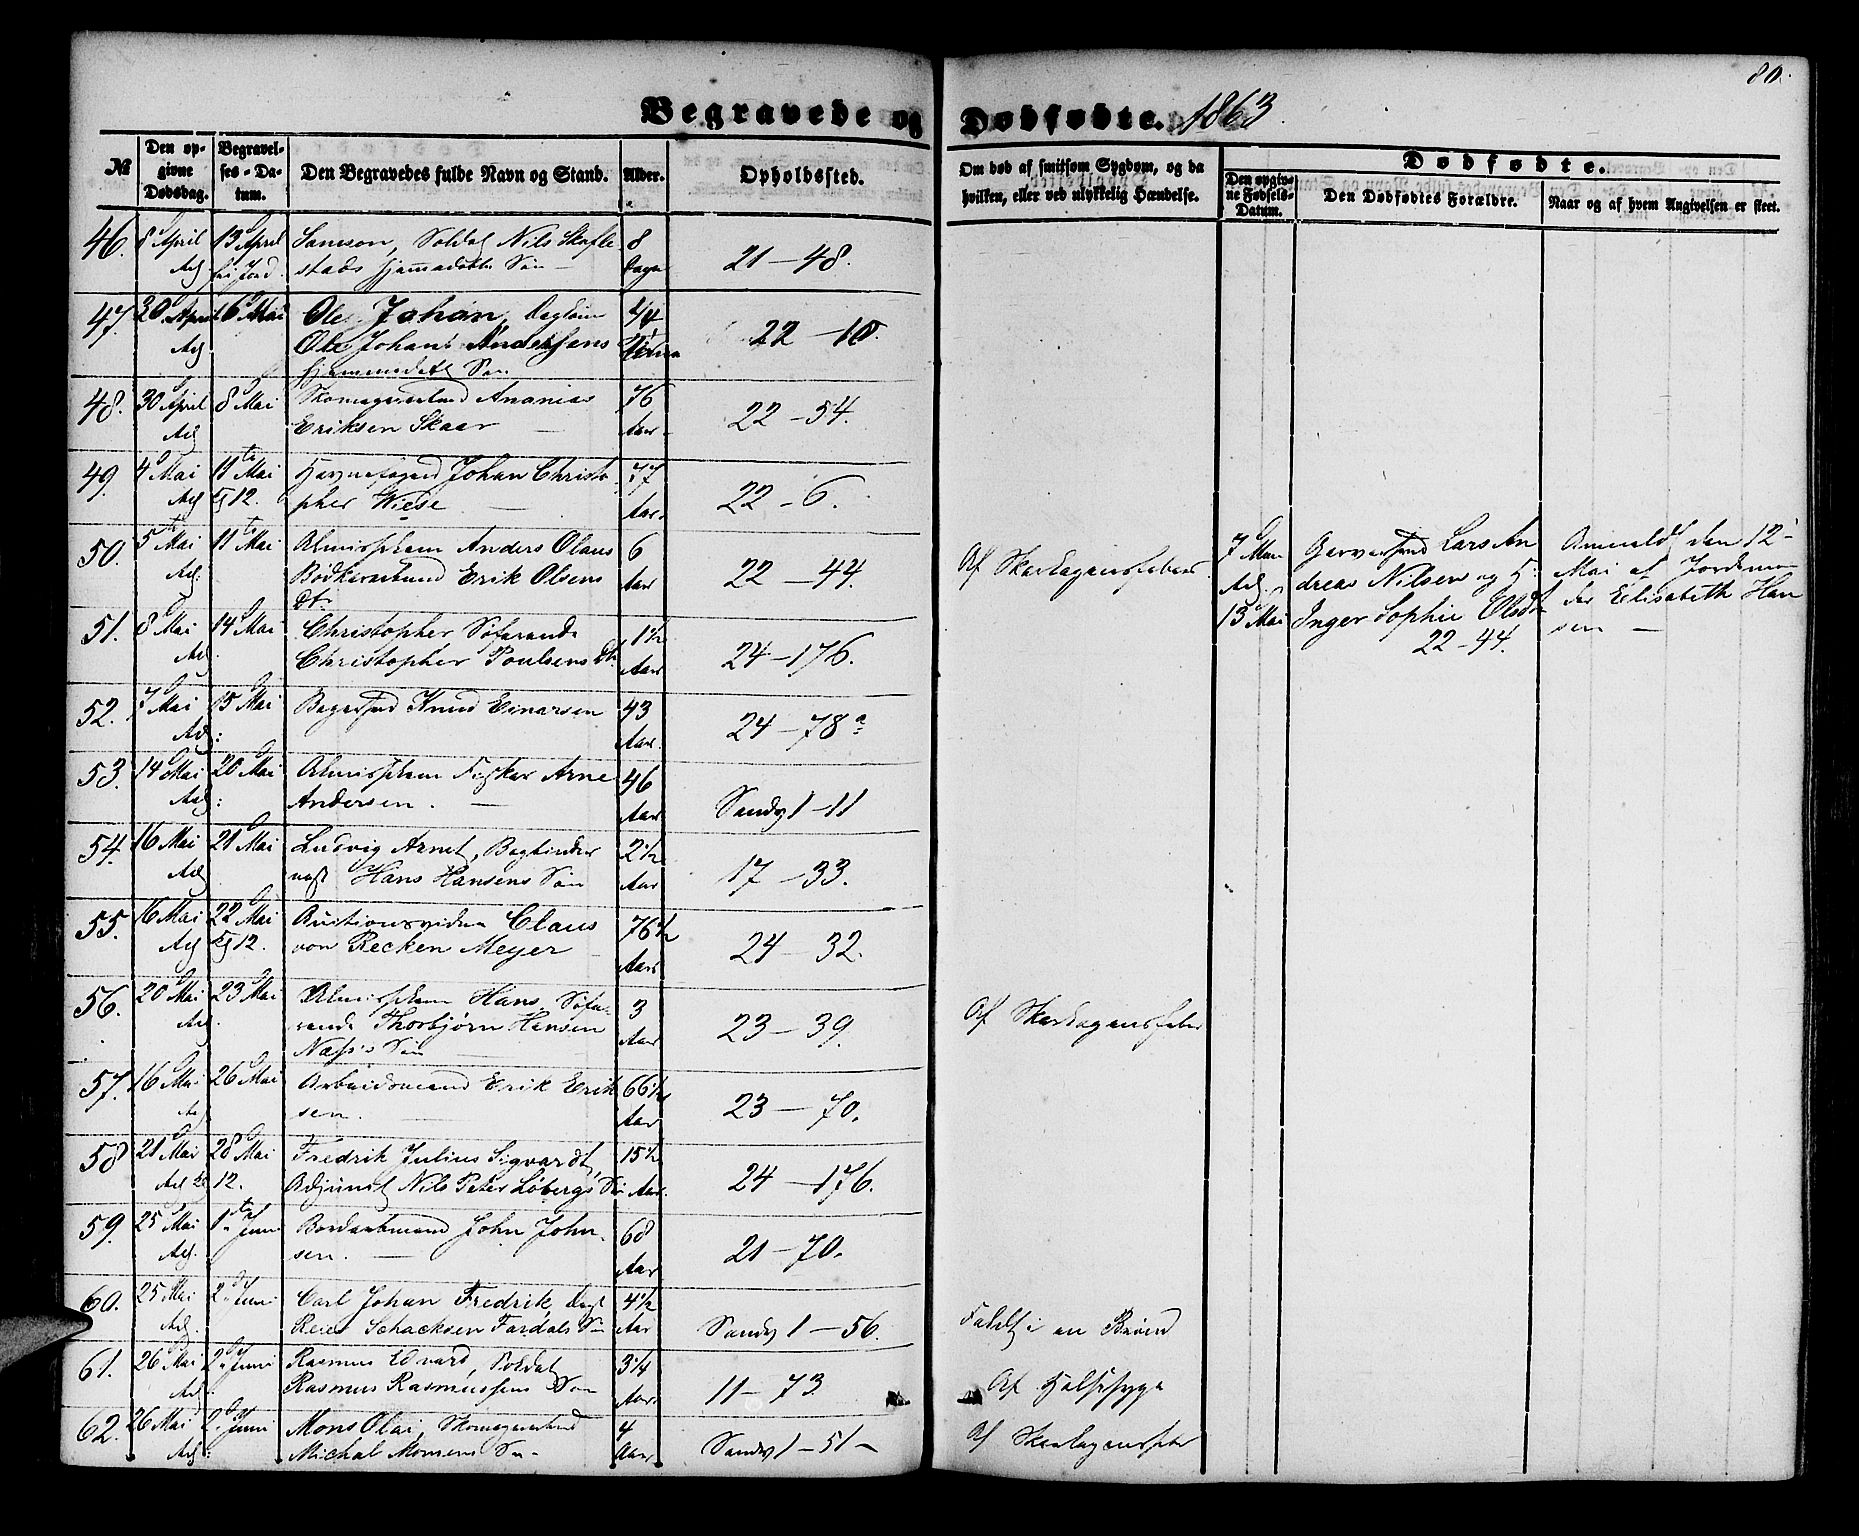 Begravede og Dødfødte. 1863.
80.
№
Den opgivne Dødsdag.
Begravelses-Datum.
Den Begravedes fulde Navn og Stand.
Alder.
Opholdssted.
Om død af smitsom Sygdom, og da hvilken, eller ved ulykkelig Hændelse.
Dødfødte.
Den opgivne Fødsels-Datum.
Den Dødfødtes Forældre.
Naar og af hvem Angivelsen er skeet.
46. 8 April 13 April Samson, Soldat Nils Skofte- 8
stads hjemmedøbte Søn Dage 21-48.
47. 20 April 6 Mai Ole Johan, Dagløn 44
Ole Johans Andersens 22-10.
hjemmedøbt Søn
48. 30 April 8 Mai Skomagersvend Ananias 76
Eriksen Skaar Aar 22-54.
49. 4 Mai 11 Mai Havnefoged Johan Christo- 77
Kl 12. pher Wiese Aar. 22-6.
50. 5 Mai 11 Mai Almisslem Anders Olaus 6
Bødkersvend Erik Olsens Aar 22-44. Af Skarlagensfeber
7 Mai Garversvend Lars An Anmeldt den 12
dreas Nilsen og H. Mai af Jordemo
13 Mai Inger Sophie Olsdt der Elisabeth Han
22-44. sen
51. 8 Mai 14 Mai Christopher Søfarende 1½
Christopher Poulsens Aar 24-176.
52. 7 Mai 15 Mai Bagersvend Knud Einarsen 43
Aar. 24-78a
53. 14 Mai 20 Mai Almisslem Fisker Arne 46
Andersen. Aar Sandv 1-11
54. 16 Mai 21 Mai Ludvig Arnet, Bogbinder 2½
Hans Hansens Søn Aar 17-33.
55. 16 Mai 22 Mai Auctionsvidne Claus 76½
Kl 12. von Recken Meyer Aar 24-32.
56. 20 Mai 23 Mai Almisslem Hans, Søfa- 3
rende Thorbjørn Hansen Aar 23-39. Af Skarlagensfeber
Næss's Søn
57. 16 Mai 26 Mai Arbeidsmand Erik Erik 66½
sen. Aar 23-70.
58 21 Mai 28 Mai Fredrik Julius Sigvardt, 15½
12. Adjunct Nils Peter Løbergs Søn Aar. 24-176.
59. 25 Mai 1ste Juni Bordarbmand John John- 68
sen. Aar 21-70.
60. 25 Mai 2 Juni Carl Johan Fredrik, 4½
Reier Schacksen Fardals Søn Aar Sandv 1-56. Faldt i en Brønd
61. 26 Mai 2 Juni Rasmus Edvard, Soldat 3¼
Rasmus Rasmussens Søn Aar. 11-73 Af Halssyge
62. 26 Mai 2 Juni Mons Olai, Skomagersvend 4
Michal Monsens Søn Aar Sandv 1-51- Af Skarlagensfeber